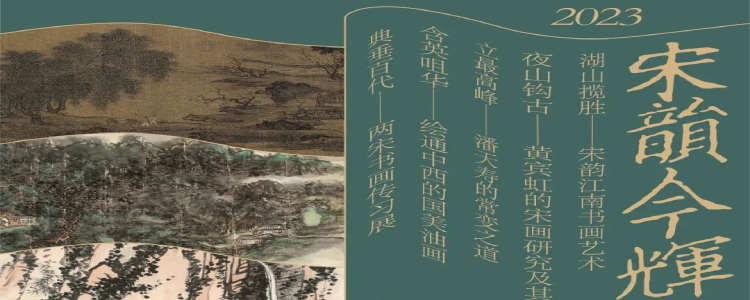 2023
宋韻今輝
湖山揽胜——宋韵江南书画艺术
夜山钩古——黄宾虹的宋画研究及其
立最高峰——潘天寿的常变之道
含英咀华——绘通中西的国美油画
典垂百代——两宋书画传习展